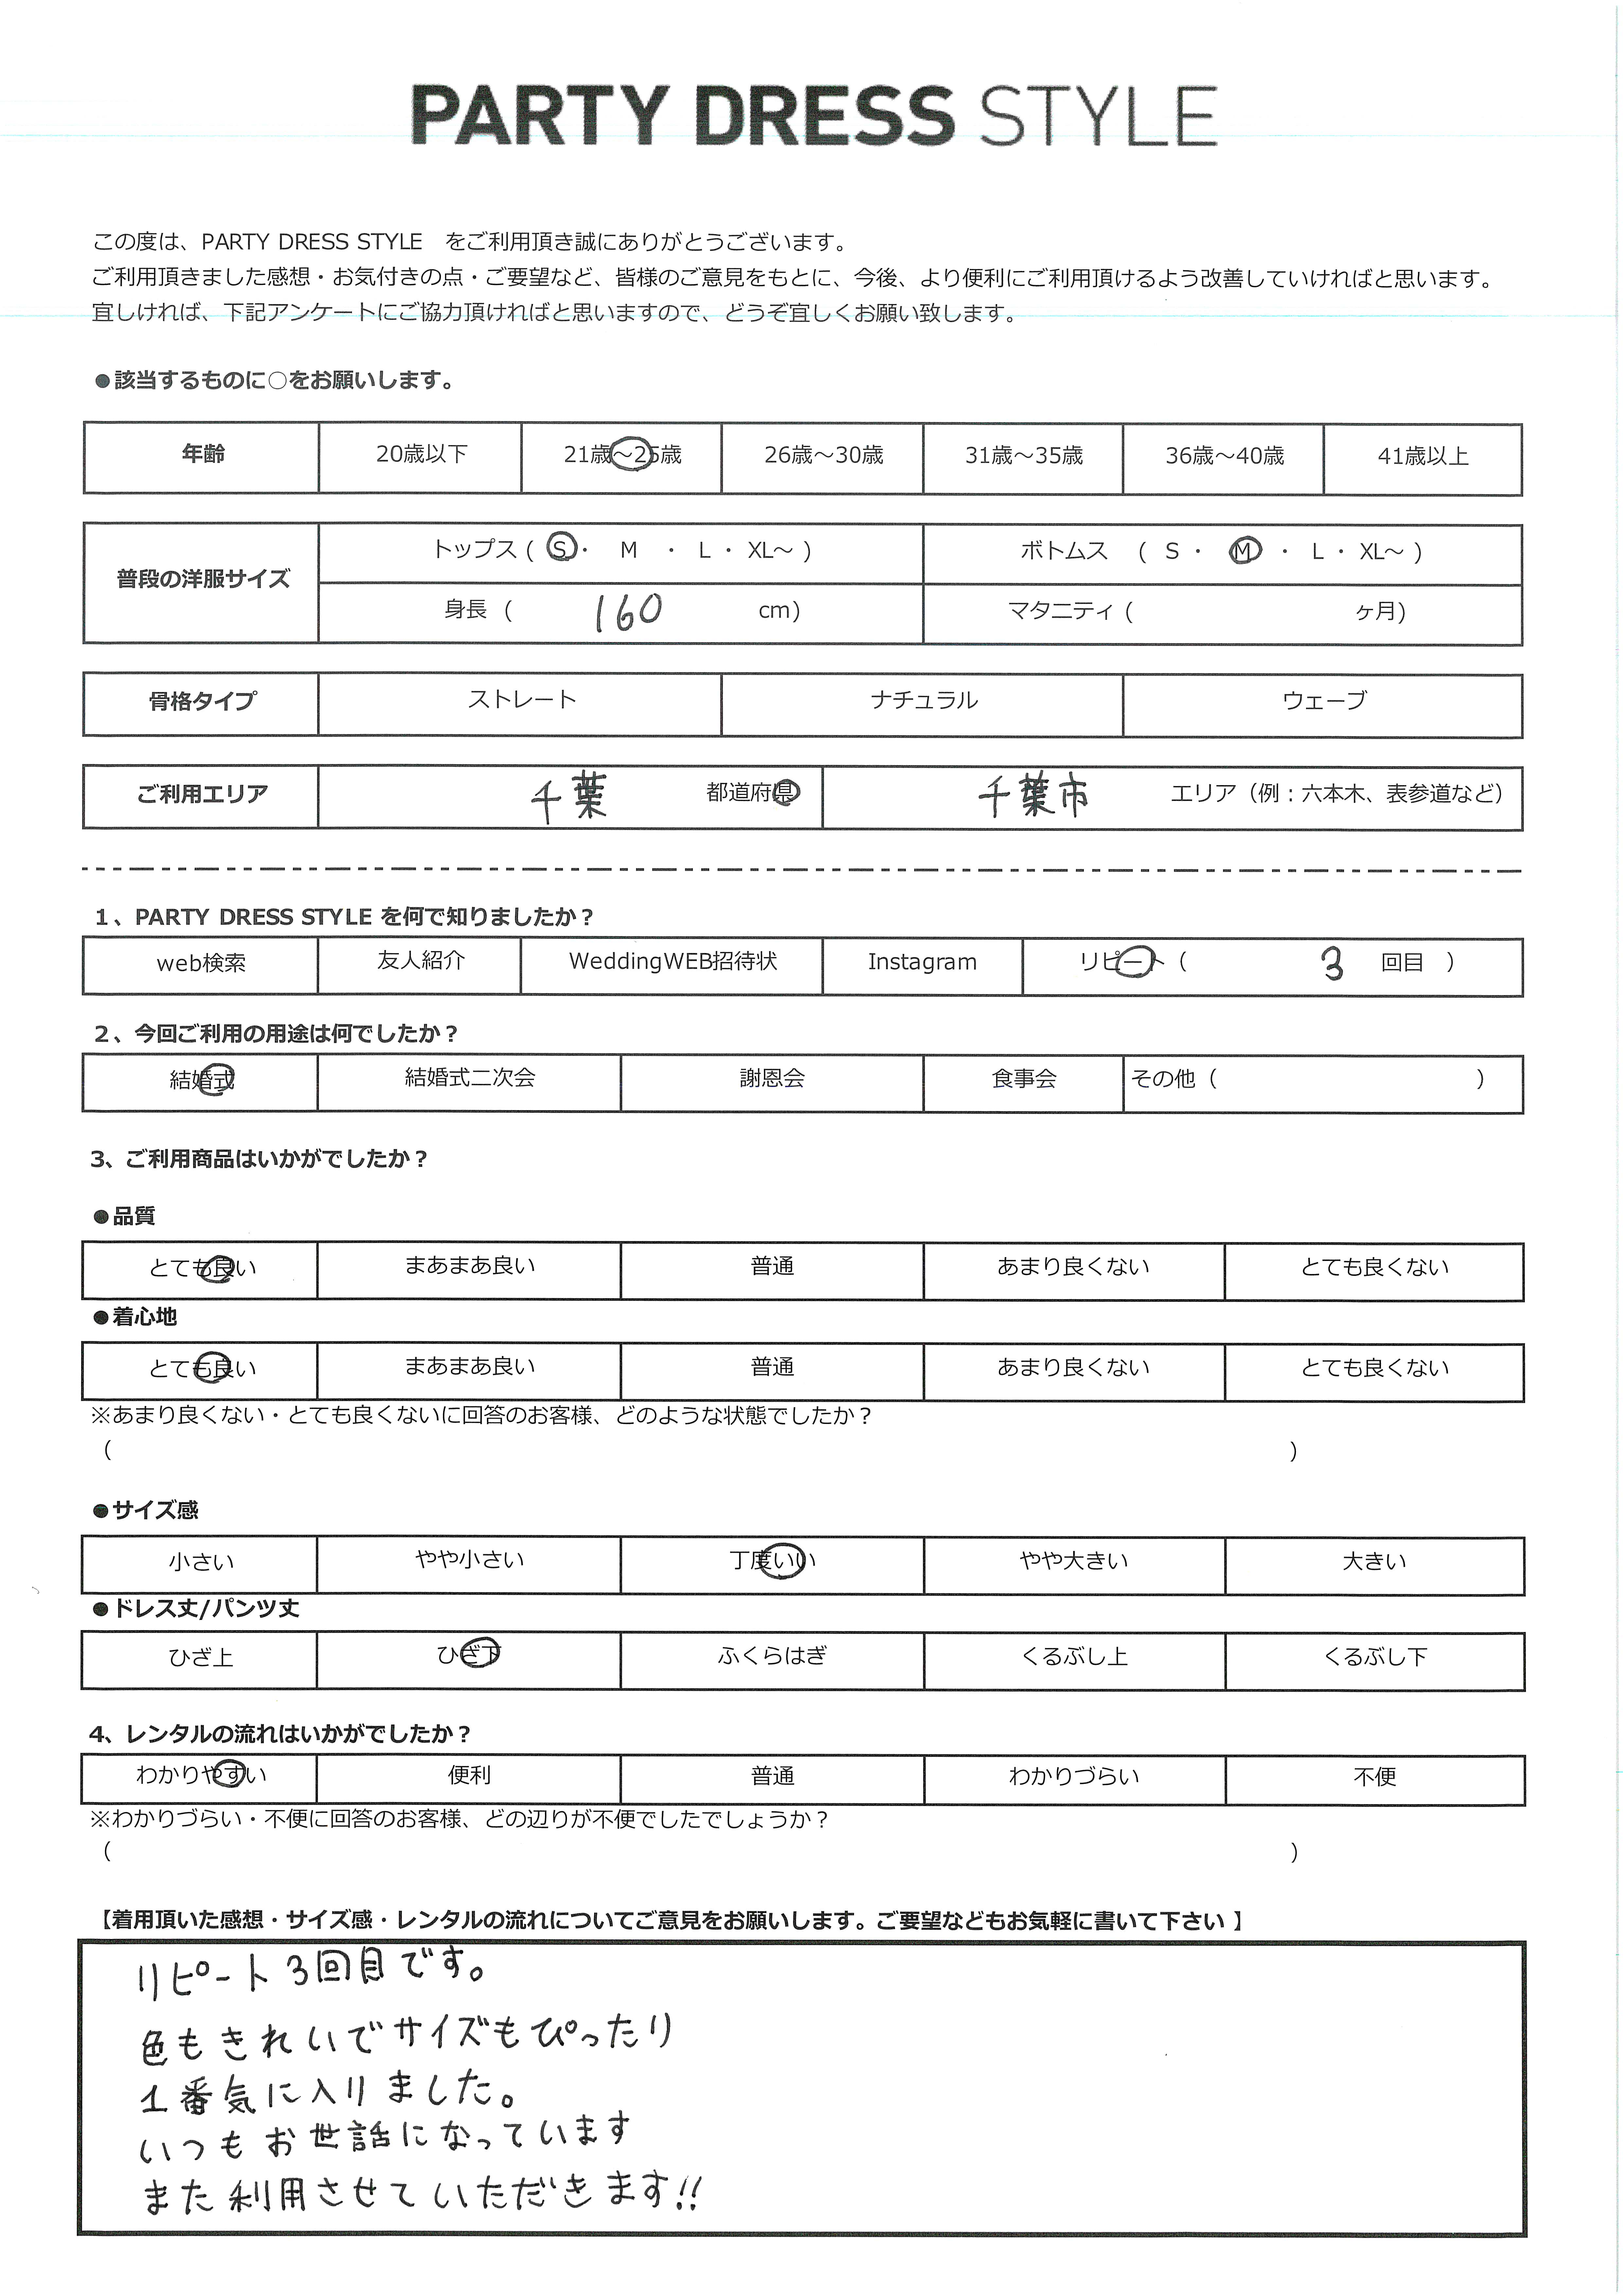 PARTY DRESS STYLE
この度は、PARTY DRESS STYLE　をご利用頂き誠にありがとうございます。
ご利用頂きました感想・お気付きの点・ご要望など、皆様のご意見をもとに、今後、より便利にご利用頂けるよう改善していければと思います。
宜しければ、下記アンケートにご協力頂ければと思いますので、どうぞ宜しくお願い致します。
●該当するものに○をお願いします。
年齢 20歳以下 21歳～25歳 26歳～30歳 31歳～35歳 36歳～40歳 41歳以上
普段の洋服サイズ トップス ( S ・ M ・ L ・ XL～ ) ボトムス ( S ・ M ・ L ・ XL～ )
身長 ( 160 cm) マタニティ ( ヶ月)
骨格タイプ ストレート ナチュラル ウェーブ
ご利用エリア 千葉 都道府県 千葉市 エリア（例：六本木、表参道など）
1、PARTY DRESS STYLE を何で知りましたか？
web検索 友人紹介 WeddingWEB招待状 Instagram リピート（ 3 回目 ）
2、今回ご利用の用途は何でしたか？
結婚式 結婚式二次会 謝恩会 食事会 その他（ ）
3、ご利用商品はいかがでしたか？
●品質
とても良い まあまあ良い 普通 あまり良くない とても良くない
●着心地
とても良い まあまあ良い 普通 あまり良くない とても良くない
※あまり良くない・とても良くないに回答のお客様、どのような状態でしたか？
（ ）
●サイズ感
小さい やや小さい 丁度いい やや大きい 大きい
●ドレス丈/パンツ丈
ひざ上 ひざ下 ふくらはぎ くるぶし上 くるぶし下
4、レンタルの流れはいかがでしたか？
わかりやすい 便利 普通 わかりづらい 不便
※わかりづらい・不便に回答のお客様、どの辺りが不便でしたでしょうか？
（ ）
【着用頂いた感想・サイズ感・レンタルの流れについてご意見をお願いします。ご要望などもお気軽に書いて下さい 】
リピート3回目です。
色もきれいでサイズもぴったり
1番気に入りました。
いつもお世話になっています
また利用させていただきます!!